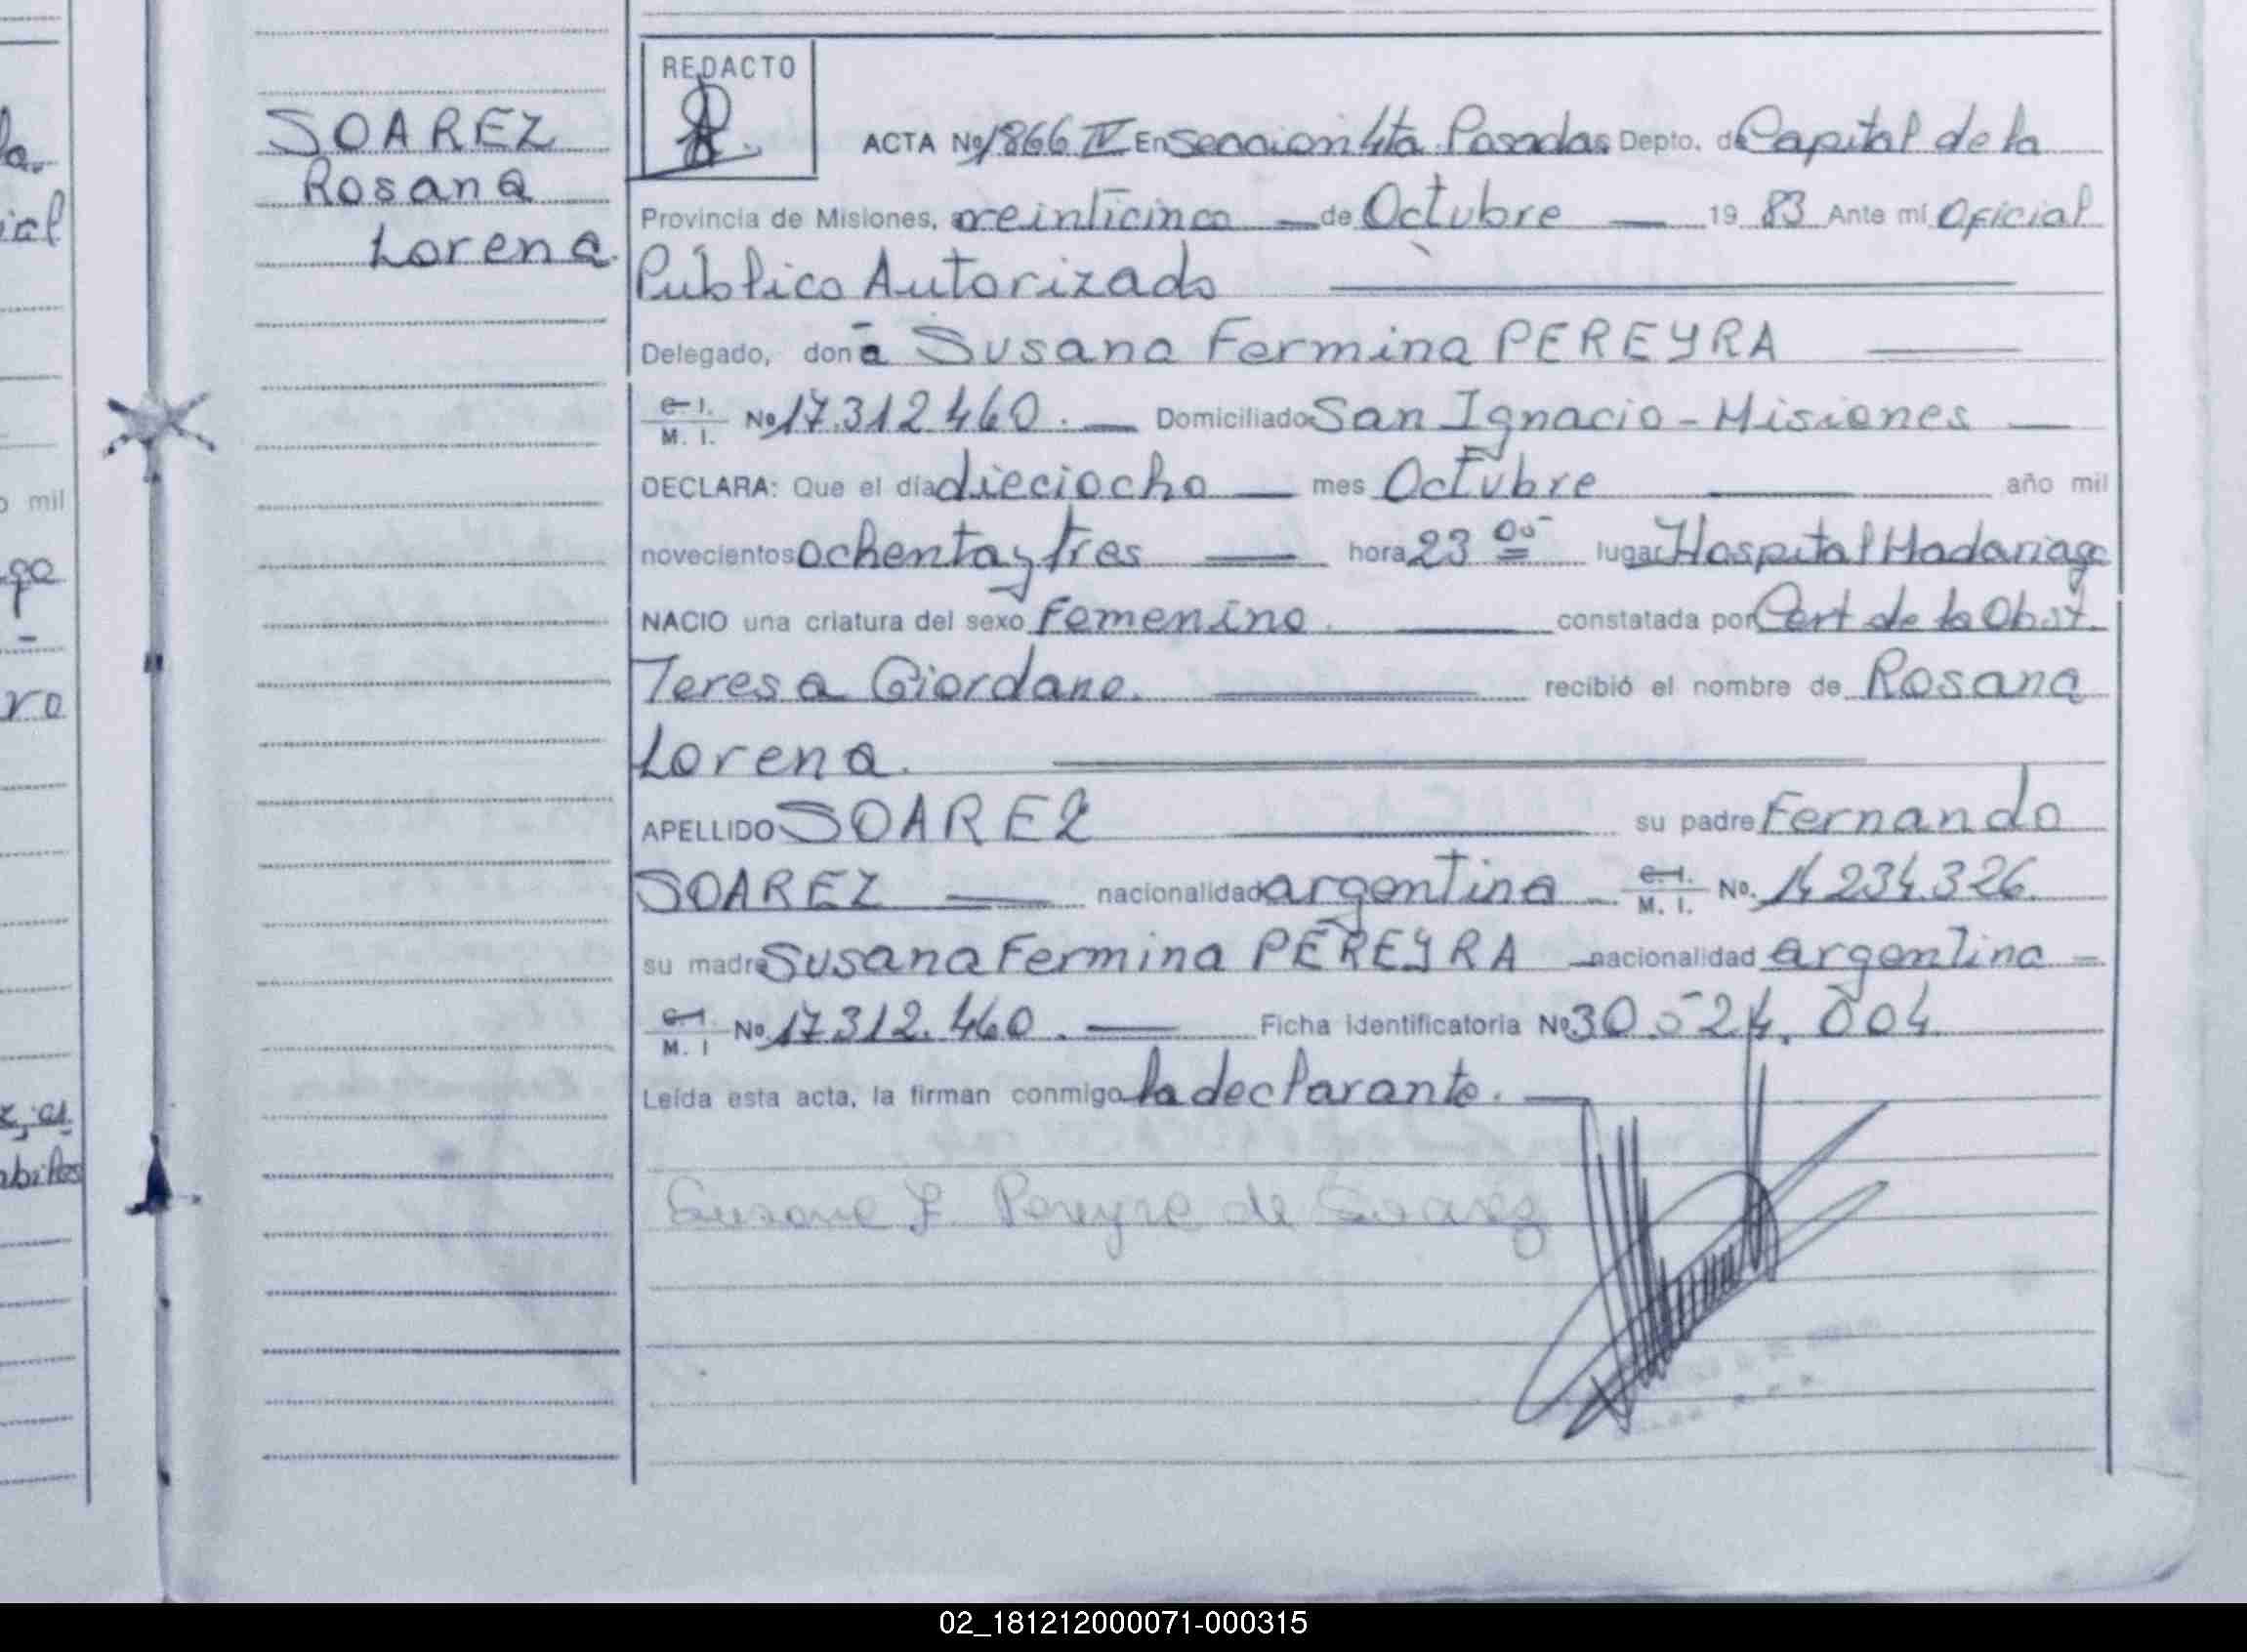 la.
ial
o mil
ga
ro
z, al
abiles
SOAREZ
Rosana
Lorena.
REDACTO
ACTA Nº 1866 IV En Seccion 4ta Posadas Depto. de Capital de la
Provincia de Misiones, a veinticinco — de Octubre — 19 83 Ante mí Oficial
Público Autorizado
Delegado, doña Susana Fermina PEREYRA
C. I. / M. I. Nº 17.312.460. — Domiciliado San Ignacio - Misiones —
DECLARA: Que el día dieciocho — mes Octubre — año mil
novecientos ochenta y tres — hora 23 00 lugar Hospital Madariaga
NACIO una criatura del sexo Femenino. — constatada por Cert de la Obst.
Teresa Giordano. — recibió el nombre de Rosana
Lorena.
APELLIDO SOAREZ — su padre Fernando
SOAREZ — nacionalidad argentina C. I. / M. I. Nº. 14 234.326.
su madre Susana Fermina PEREYRA nacionalidad argentina -
C. I. / M. I Nº. 17.312.460. — Ficha identificatoria Nº 30.524.004
Leída esta acta, la firman conmigo la declarante. —
Susana F. Pereyra de Soarez
02_181212000071-000315